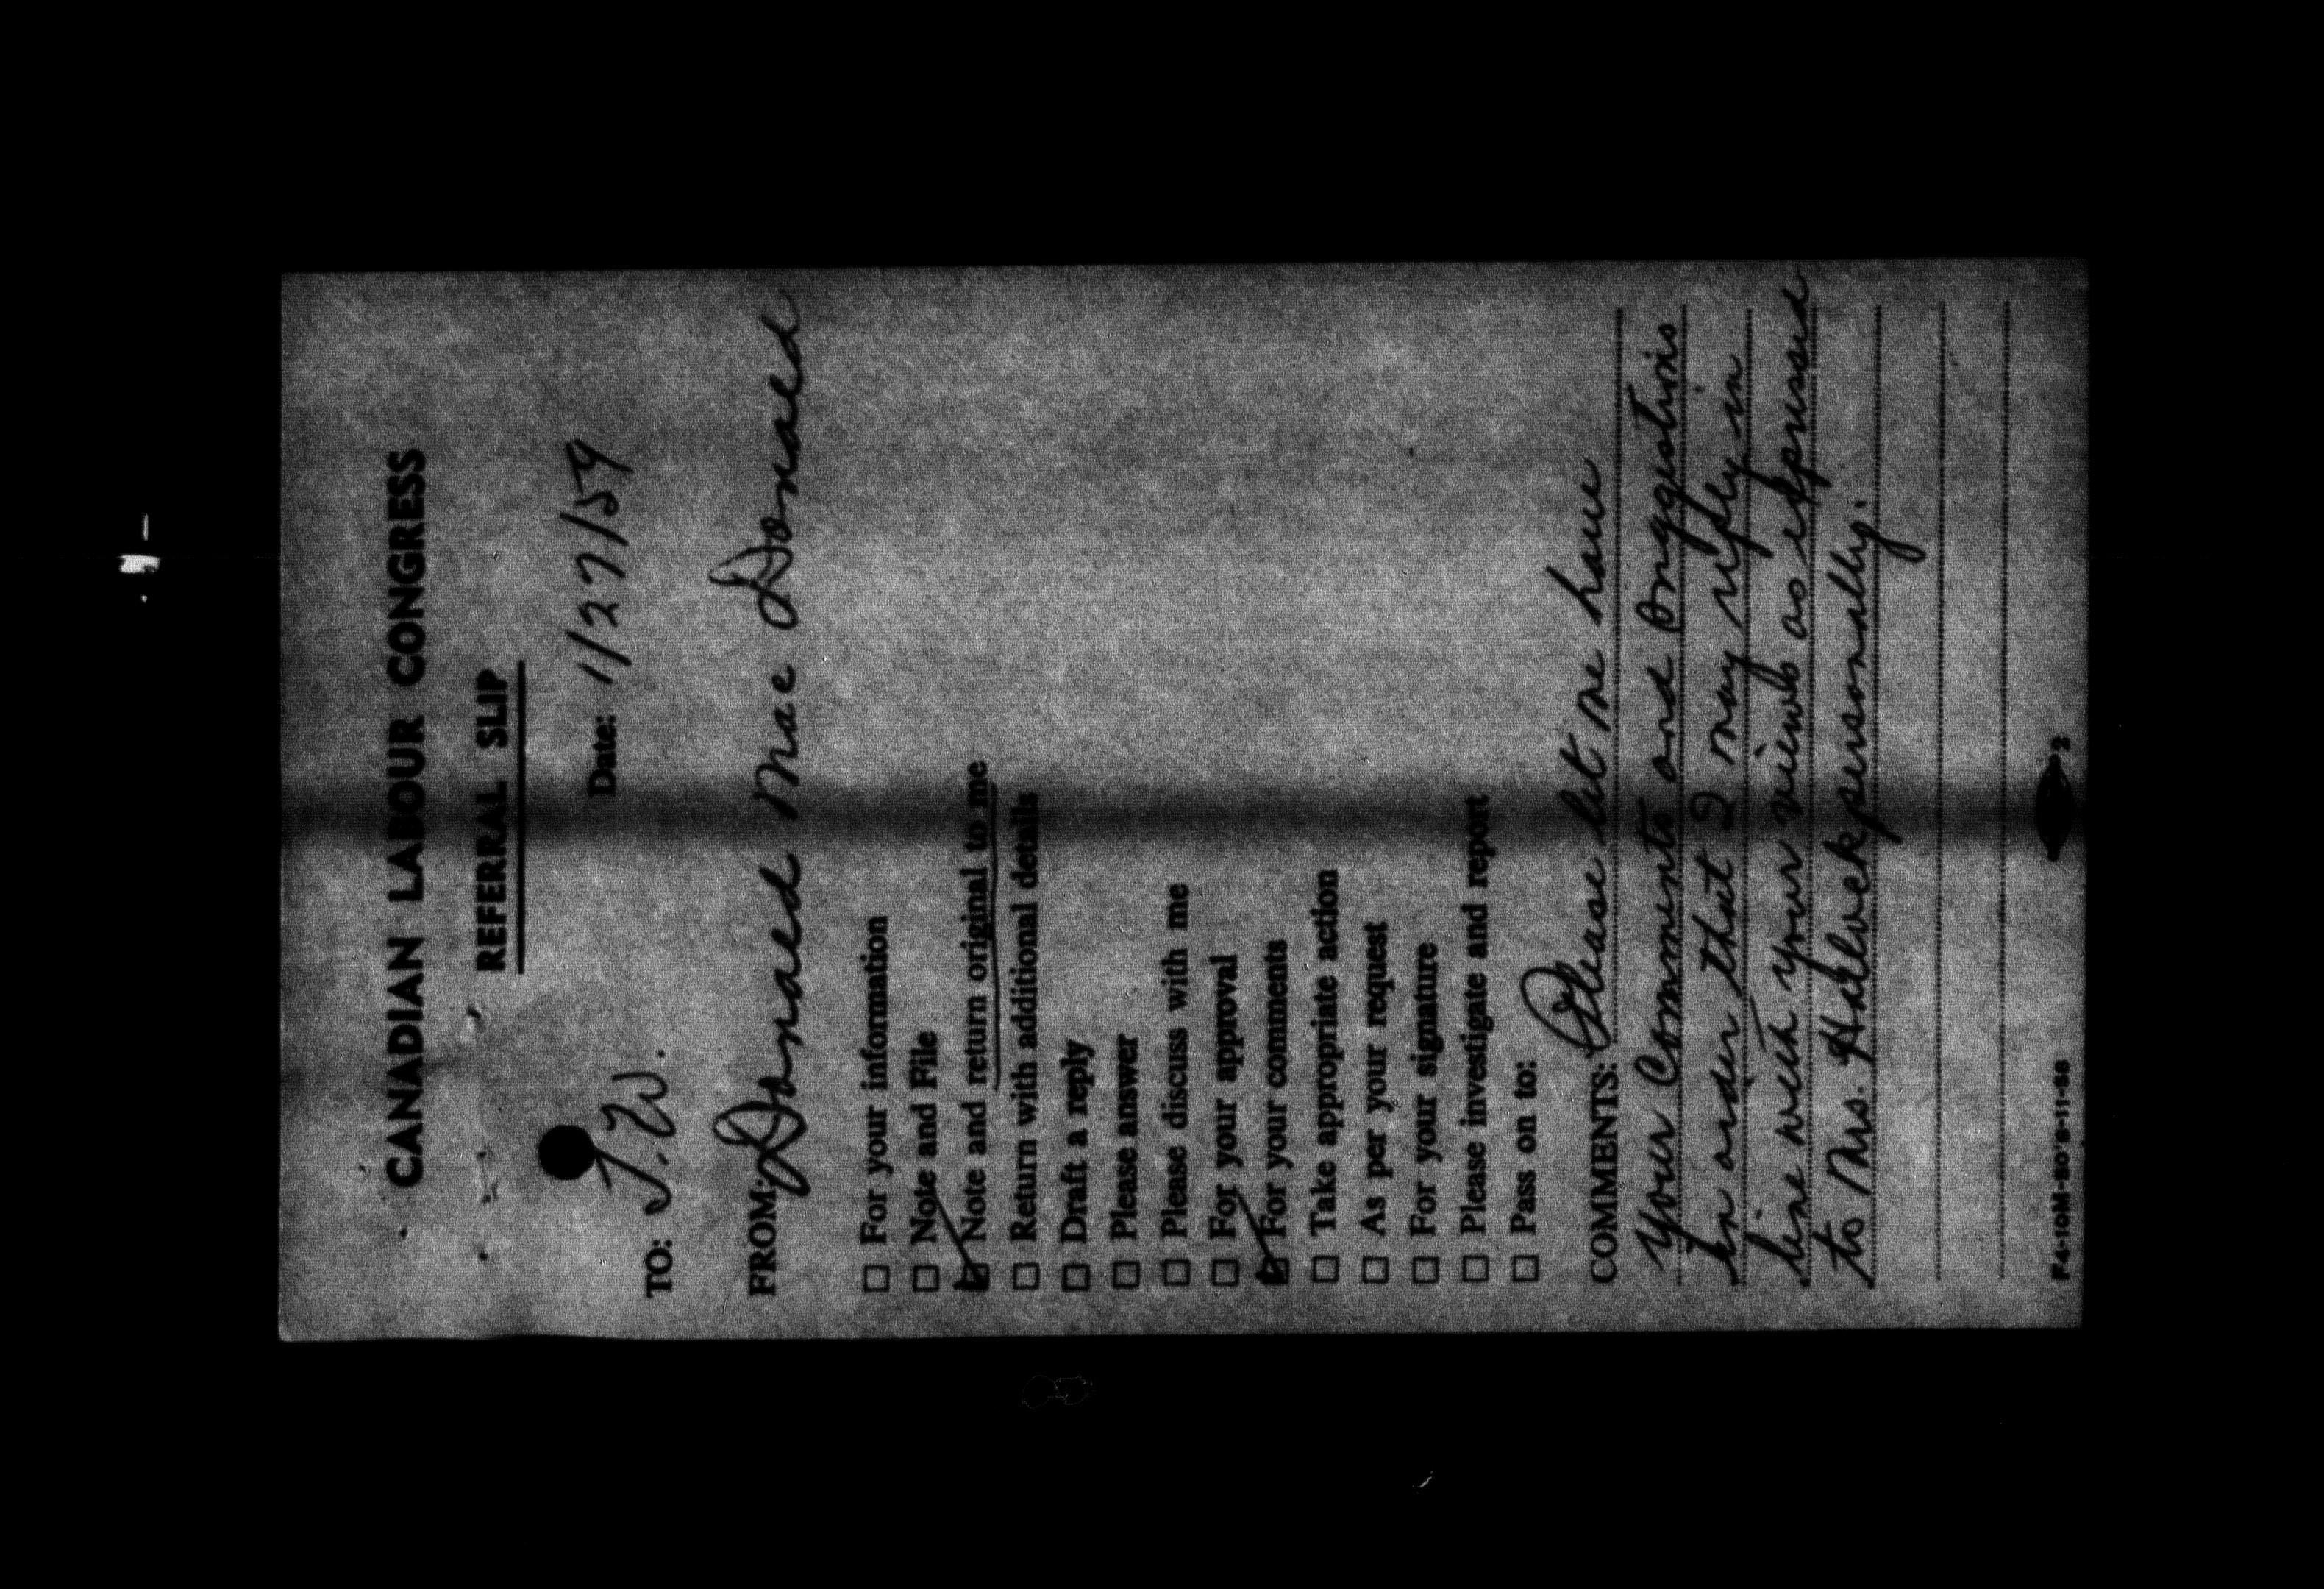 CANADIAN LABOUR CONGRESS
REFERRAL SLIP
Date: 1/27/59
TO: J.W.
FROM: Donald MacDonald
☐ For your information
☐ Note and File
☑ Note and return original to me
☐ Return with additional details
☐ Draft a reply
☐ Please answer
☐ Please discuss with me
☐ For your approval
☑ For your comments
☐ Take appropriate action
☐ As per your request
☐ For your signature
☐ Please investigate and report
☐ Pass on to:
COMMENTS: Please let me have
your comments and suggestions
in order that I may reply in
line with your views as expressed
to Mrs. personally.
F4-10M-80'S-11-58
2